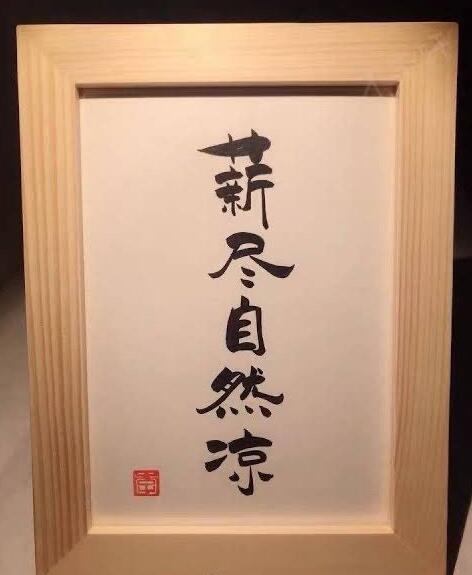 薪尽自然凉